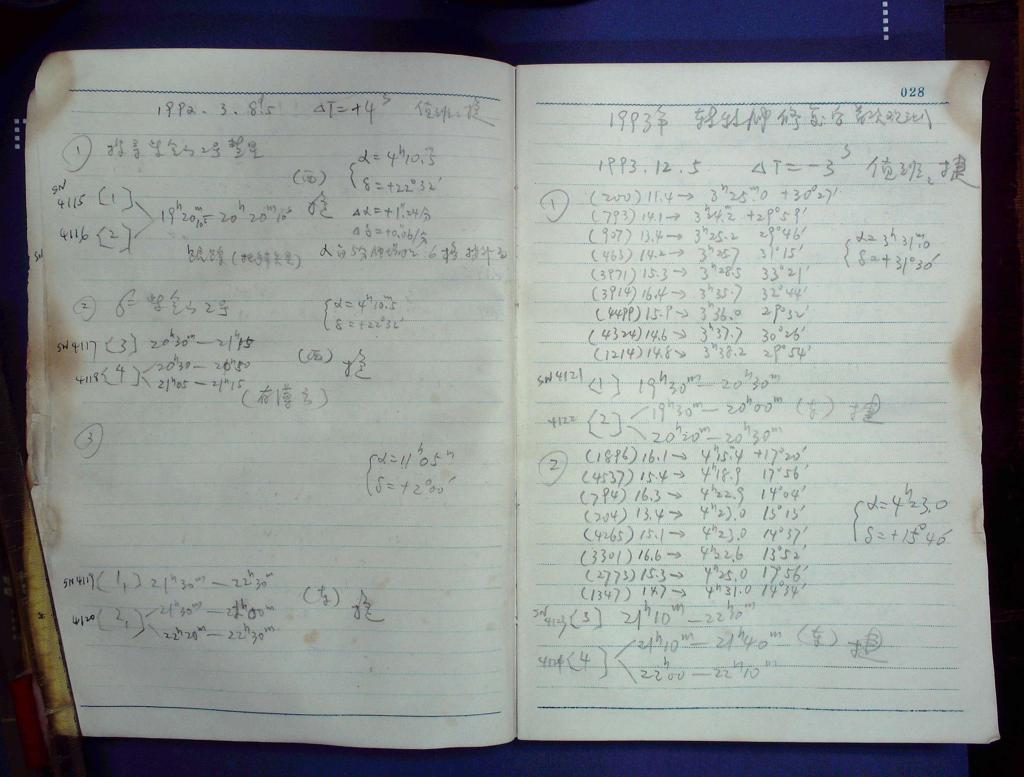 1992.3.8.5 ΔT=+4ˢ 值班:捷
① 紫金山2号彗星
α=4ʰ10.5
(西) δ=+22°32′
SN 4115 [1]
19ʰ20ᵐ–20ʰ20ᵐ10ˢ 捷 Δα=+1.24/分
4116 [2]
Δδ=+0.06/分
② 紫金山2号 α=4ʰ10.5
δ=+22°32′
SN4117 [3] 20ʰ30ᵐ—21ʰ15 (西) 捷
4118 [4] 20ʰ30—20ʰ50
21ʰ05—21ʰ15
(有薄云)
③
α=11ʰ05ᵐ
δ=+2°00′
SN4119 [1,] 21ʰ30ᵐ—22ʰ30ᵐ (东) 捷
4120 [2,] 21ʰ30ᵐ—22ʰ00ᵐ
22ʰ20ᵐ—22ʰ30ᵐ
028
1993年
1993.12.5 ΔT=−3ˢ 值班:捷
① (200) 11.4→ 3ʰ25ᵐ.0 +30°27′
(793) 14.1→ 3ʰ24.2 +29°59′
(907) 13.4→ 3ʰ25.2 29°46′ α=3ʰ31ᵐ.0
(463) 14.2→ 3ʰ25.7 31°15′ δ=+31°30′
(3971) 15.3→ 3ʰ28.5 33°21′
(3914) 16.4→ 3ʰ35.7 32°44′
(4499) 15.9→ 3ʰ36.0 29°32′
(4324) 14.6→ 3ʰ37.7 30°26′
(1214) 14.8→ 3ʰ38.2 29°54′
SN4121 [1] 19ʰ30ᵐ—20ʰ30ᵐ
4122 [2] 19ʰ30ᵐ—20ʰ00ᵐ (东) 捷
20ʰ20ᵐ—20ʰ30ᵐ
② (1896) 16.1→ 4ʰ15.4 +17°20′
(4537) 15.4→ 4ʰ18.9 17°56′
(794) 16.3→ 4ʰ22.9 14°04′
(204) 13.4→ 4ʰ23.0 15°15′ α=4ʰ23.0
(4265) 15.1→ 4ʰ23.0 14°37′ δ=+15°46′
(3301) 16.6→ 4ʰ22.6 13°52′
(2773) 15.3→ 4ʰ25.0 17°56′
(1347) 14.7→ 4ʰ31.0 14°34′
SN 4123 [3] 21ʰ10ᵐ—22ʰ10ᵐ
4124 [4] 21ʰ10ᵐ—21ʰ40ᵐ (东) 捷
22ʰ00—22ʰ10ᵐ